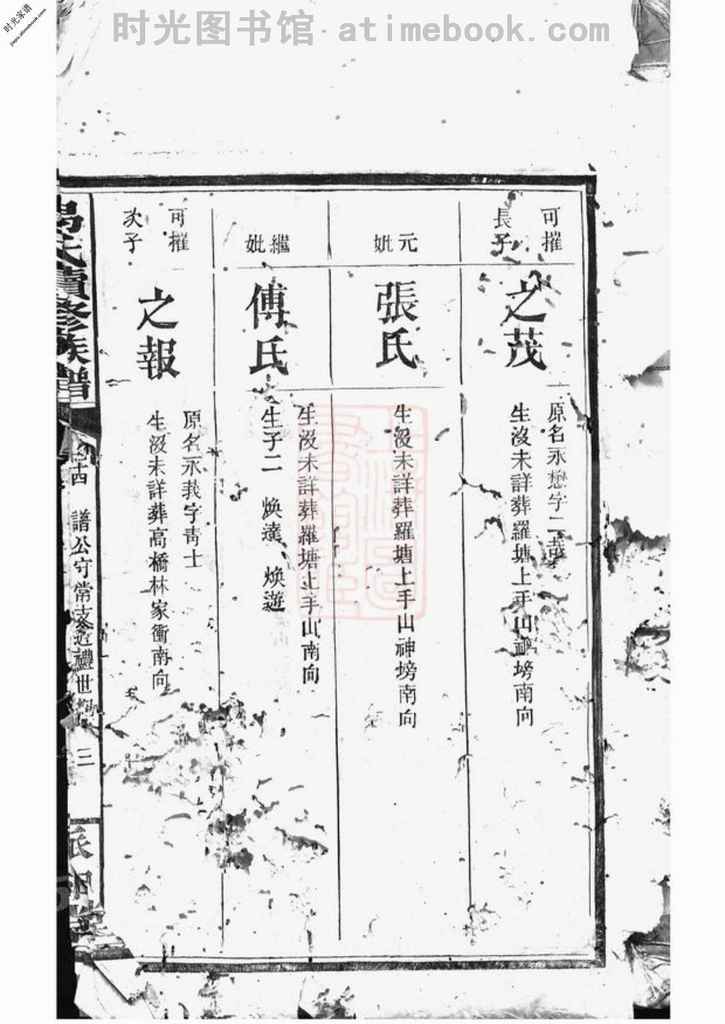 时光图书馆 - atimebook.com
时光家谱
可摧
長子
之茂
原名永懋字二
生沒未詳葬羅塘上手山神塝南向
元妣
張氏
生沒未詳葬羅塘上手山神塝南向
繼妣
傅氏
生沒未詳葬羅塘上手山南向
生子二 煥達 煥遊
可摧
次子
之報
原名永莪字青士
生沒未詳葬高橋林家衝南向
氏續修族譜
譜公守常支
禮世
三